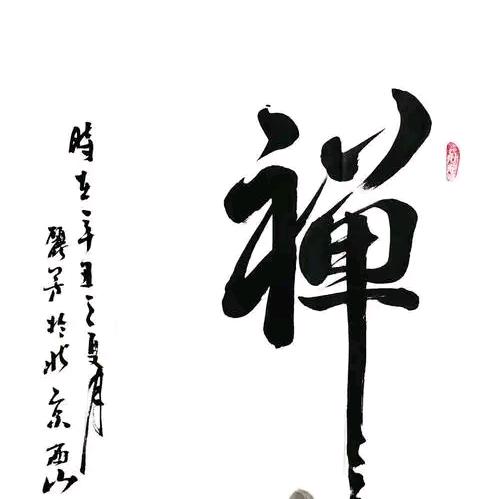 禅
時在辛丑之夏月
麗芳於北京西山